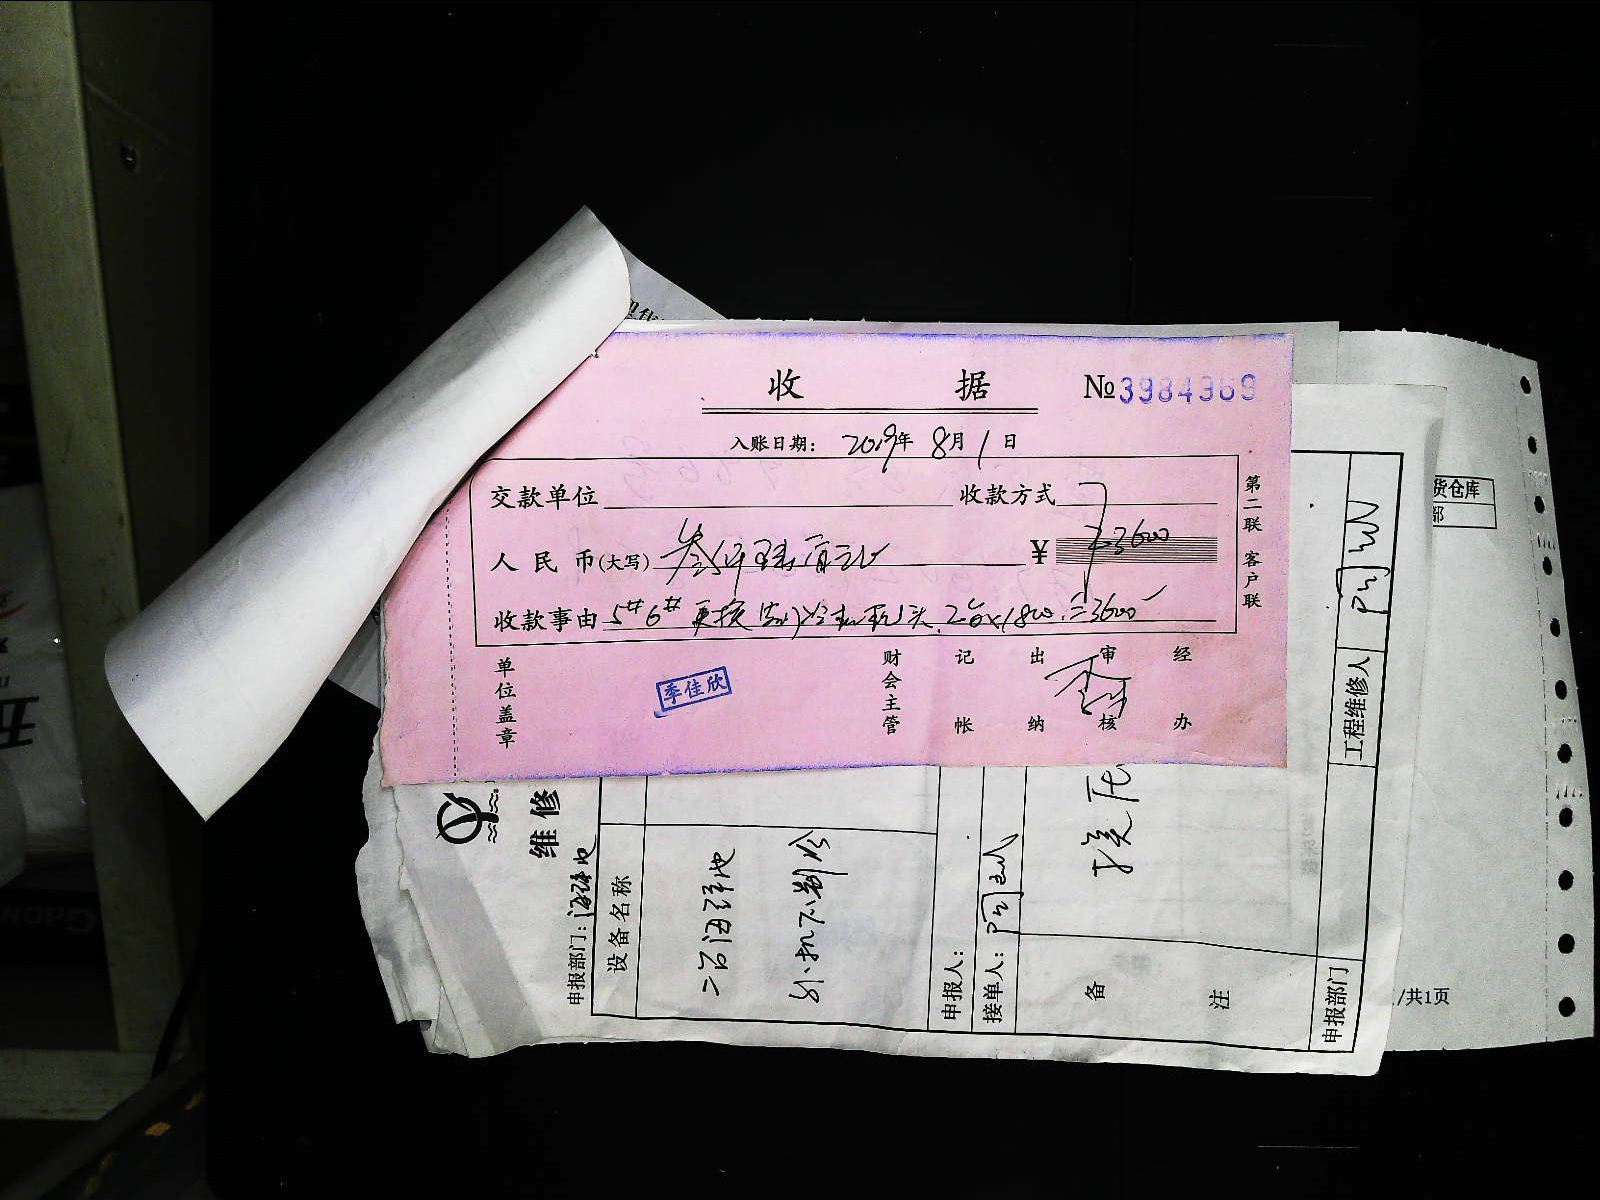 收 据
№3984369
入账日期: 2019年 8月 1日
交款单位
收款方式
人民币(大写) 叁仟陆百元
¥ 3600
收款事由 5# 6# 更换 机头 2台×1800 =3600
第二联 客户联
单位盖章
季佳欣
财会主管
记帐
出纳
审核
经办
维修
申报部门:
设备名称
二台海鲜池
外机不制冷
申报人:
接单人:
备注
换压
工程维修人
申报部门
货仓库
部
/共1页